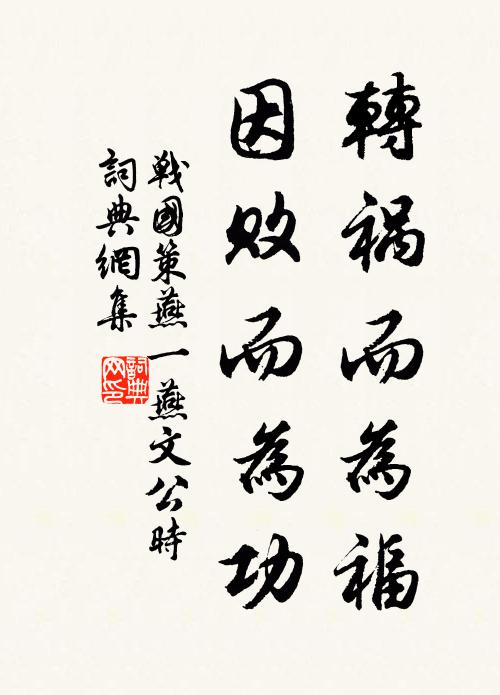 轉禍而為福
因敗而為功
戰國策燕一燕文公時
詞典網集
詞典
网印